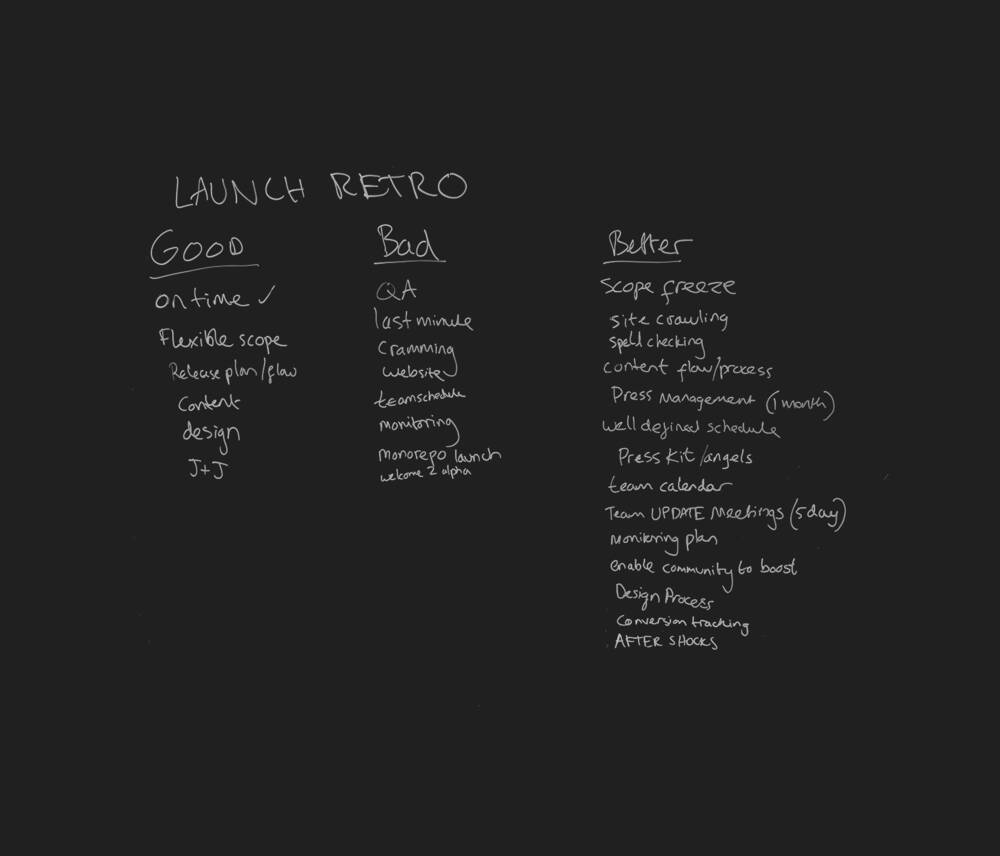 LAUNCH RETRO
GOOD
on time ✓
Flexible scope
Release plan/flow
Content
design
J+J
Bad
QA
last minute
Cramming
website
team schedule
monitoring
monorepo launch
welcome 2 alpha
Better
scope freeze
site crawling
spell checking
content flow/process
Press Management (1 month)
well defined schedule
Press Kit/angels
team calendar
Team UPDATE Meetings (5 day)
Monitoring plan
enable community to boost
Design Process
Conversion tracking
AFTER SHOCKS